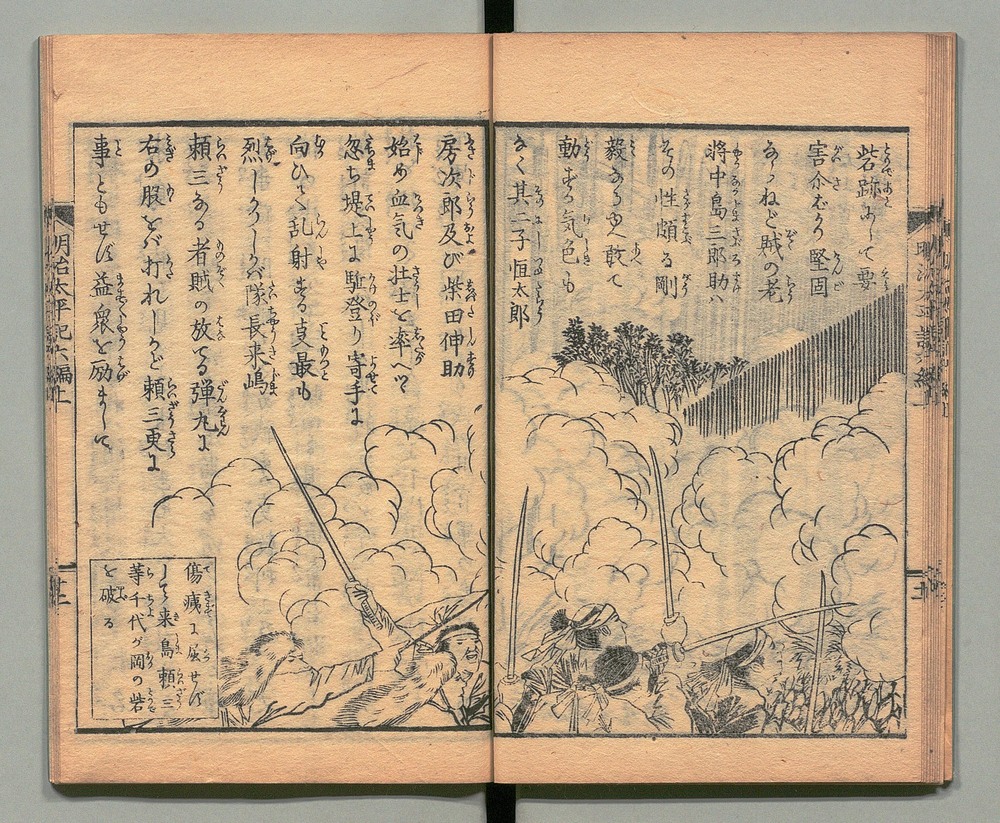 砦跡にて要
害余ばかり堅固
ならねど賊の老
將中島三郎助ハ
その性頗る剛
毅なる由敢て
動ずる気色も
なく其二子恒太郎
房次郎及び柴田伸助
始め血気の壮士を率へて
忽ち堤上に駈登り寄手に
向ひて乱射する叓最も
烈しかりしかバ隊長来嶋
頼三なる者賊の放てる弾丸に
右の股をバ打れしかど頼三更に
事ともせず益衆を励まして
傷痍に屈せず
して来島頼三
等千代ヶ岡の砦
を破る
明治太平記六編上
廿二